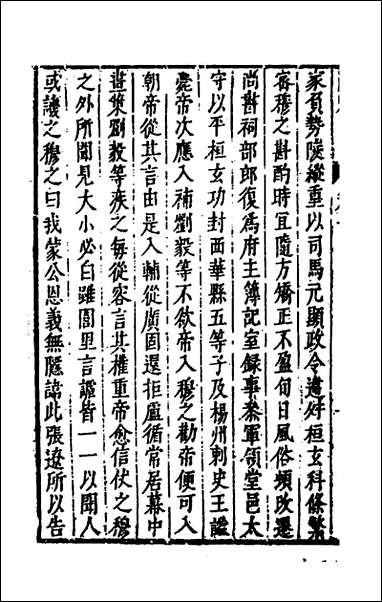 家負勢陵縱重以司馬元顯政令違舛桓玄科條繁
宻穆之斟酌時宜隨方矯正不盈旬日風俗頓攺遷
尚書祠部郎復爲府主簿記室録事叅軍領堂邑太
守以平桓玄功封西華縣五等子及楊州刺史王謐
薨帝次應入補劉毅等不欲帝入穆之勸帝便可入
朝帝從其言由是入輔從廣固還拒盧循常居幕中
畫策劉毅等疾之每從容言其權重帝愈信仗之穆
之外所聞見大小必白雖閭里言謔皆一一以聞人
或譏之穆之曰我蒙公恩義無隱諱此張遼所以告